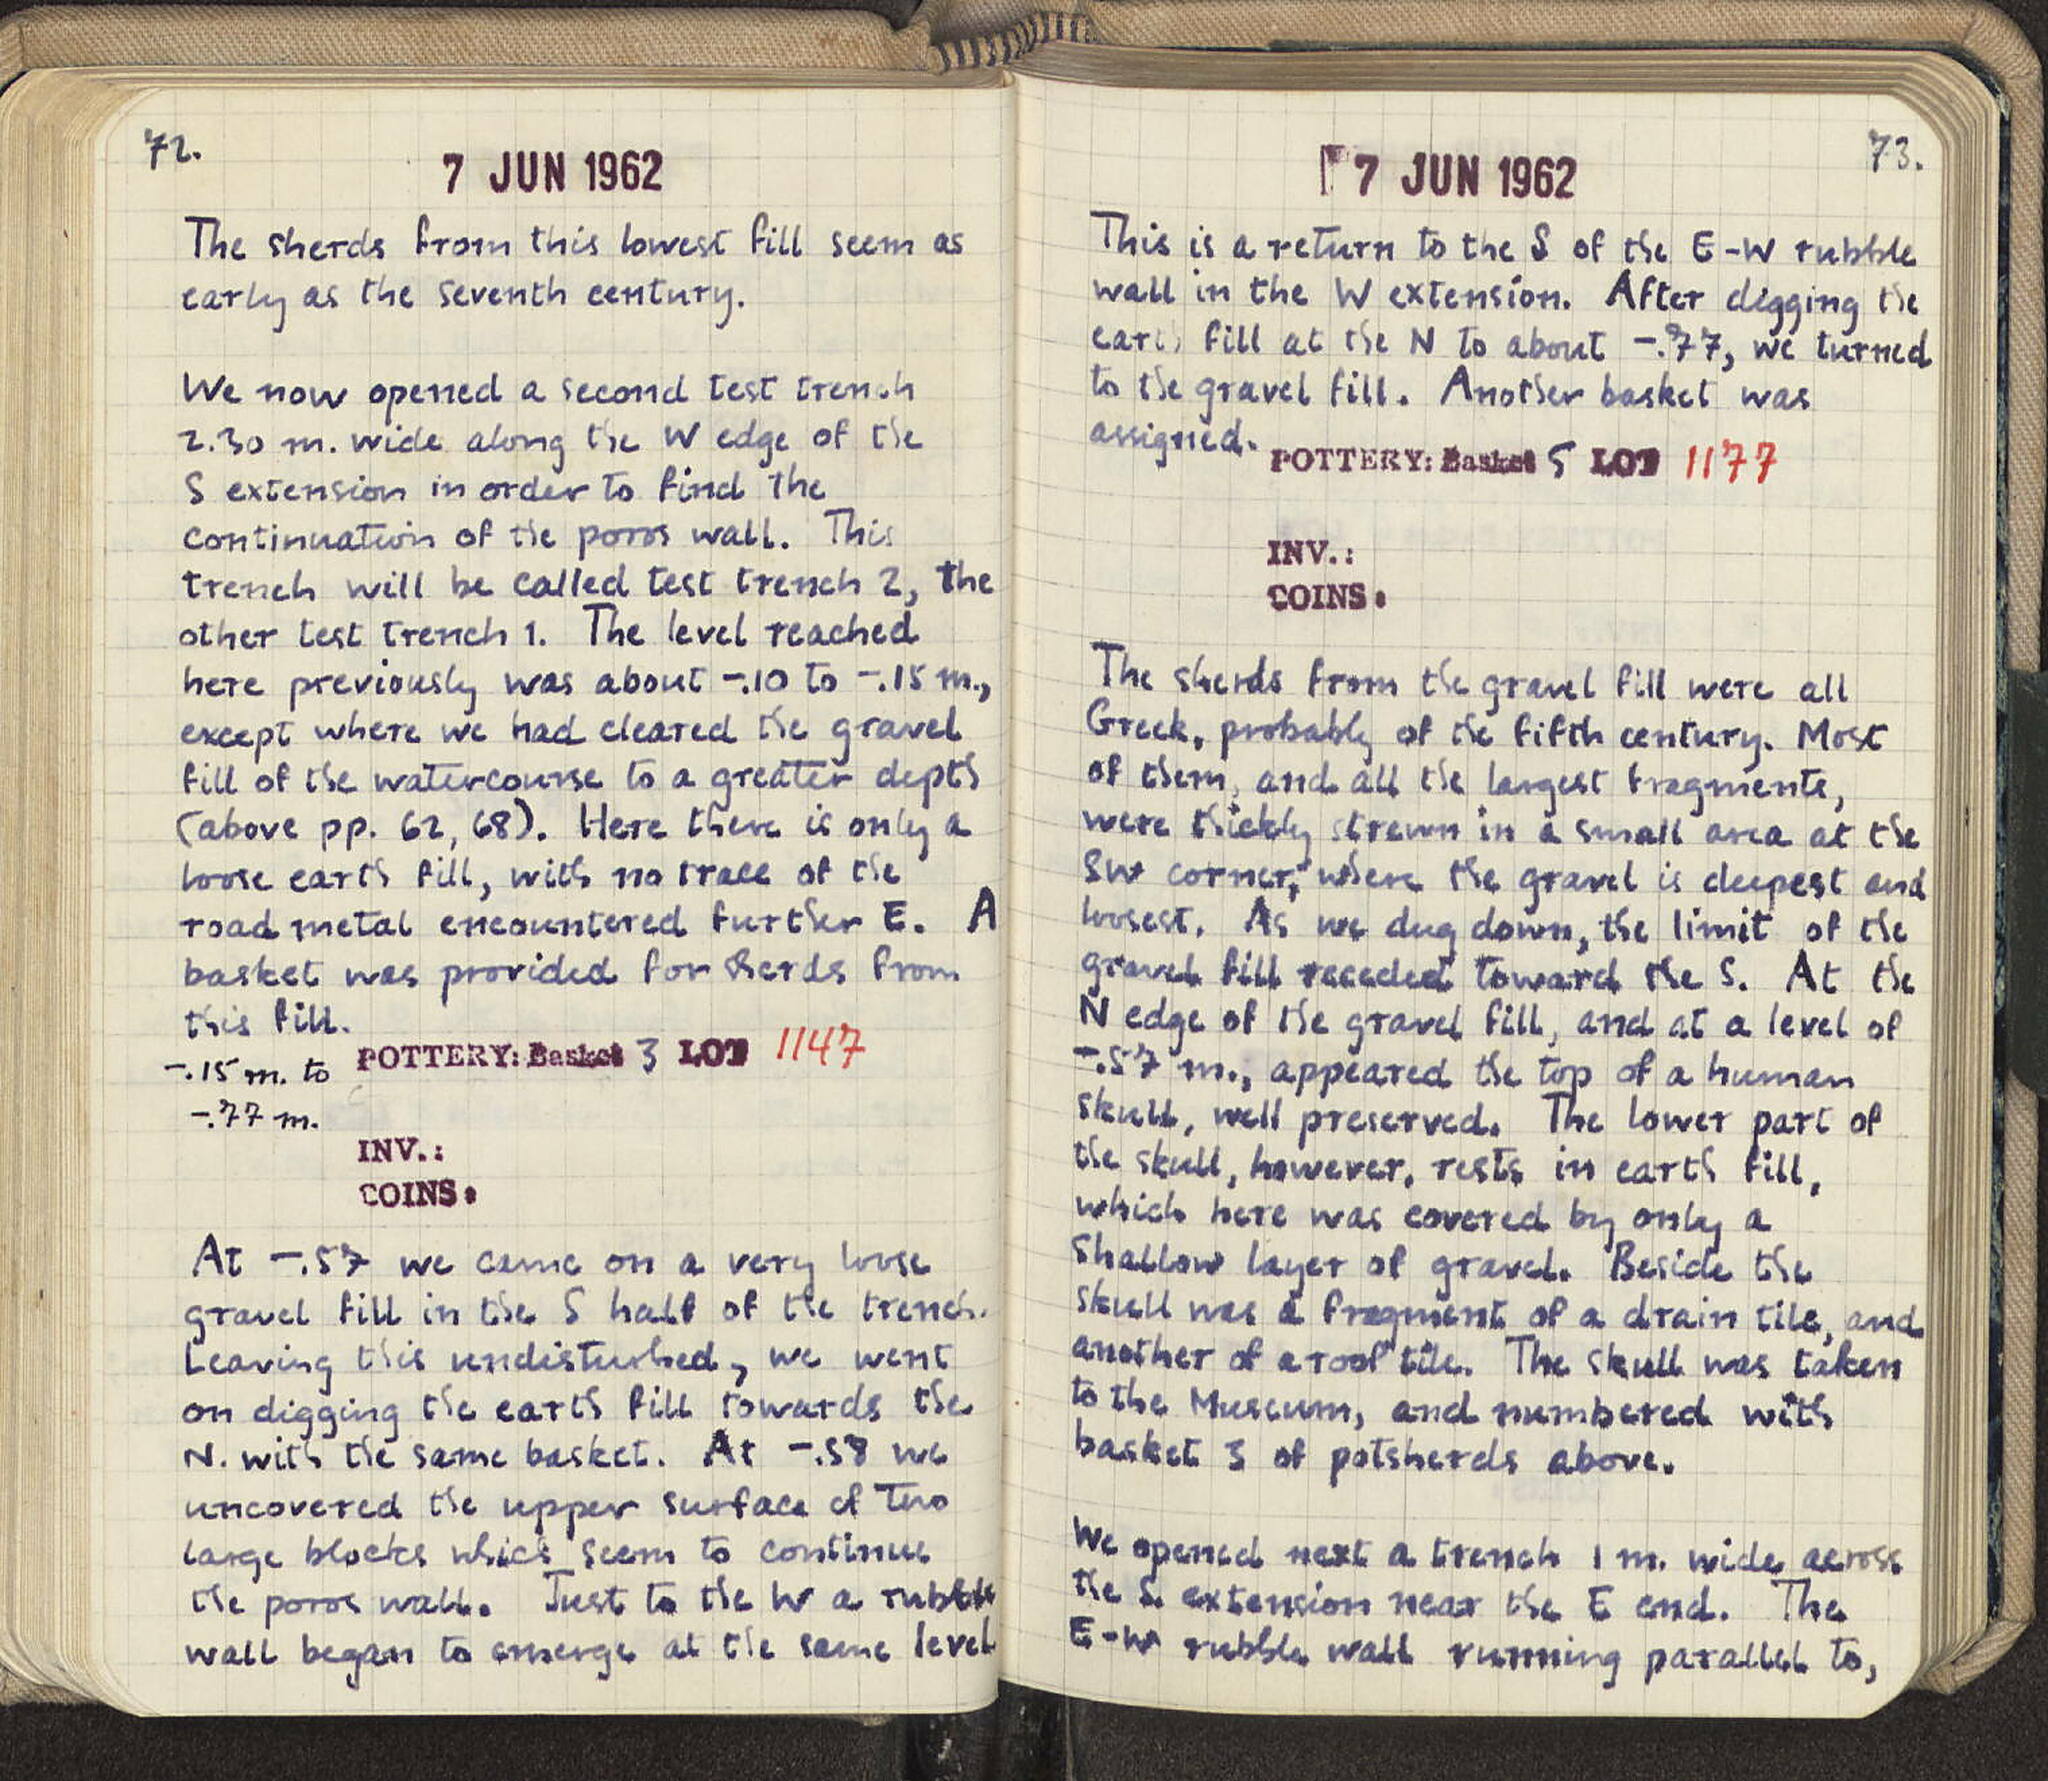 72.
7 JUN 1962
The sherds from this lowest fill seem as
early as the seventh century.
We now opened a second test trench
2.30 m. wide along the W edge of the
S extension in order to find the
continuation of the poros wall. This
trench will be called test trench 2, the
other test trench 1. The level reached
here previously was about -.10 to -.15 m.,
except where we had cleared the gravel
fill of the watercourse to a greater depth
(above pp. 62, 68). Here there is only a
loose earth fill, with no trace of the
road metal encountered further E. A
basket was provided for sherds from
this fill.
-.15 m. to
-.77 m.
POTTERY: Basket 3 LOT 1147
INV.:
COINS:
At -.57 we came on a very loose
gravel fill in the S half of the trench.
Leaving this undisturbed, we went
on digging the earth fill towards the
N. with the same basket. At -.58 we
uncovered the upper surface of two
large blocks which seem to continue
the poros wall. Just to the W a rubble
wall began to emerge at the same level
73.
7 JUN 1962
This is a return to the S of the E-W rubble
wall in the W extension. After digging the
earth fill at the N to about -.77, we turned
to the gravel fill. Another basket was
assigned.
POTTERY: Basket 5 LOT 1177
INV.:
COINS:
The sherds from the gravel fill were all
Greek, probably of the fifth century. Most
of them, and all the largest fragments,
were thickly strewn in a small area at the
SW corner, where the gravel is deepest and
loosest. As we dug down, the limit of the
gravel fill receded toward the S. At the
N edge of the gravel fill, and at a level of
-.57 m., appeared the top of a human
skull, well preserved. The lower part of
the skull, however, rests in earth fill,
which here was covered by only a
shallow layer of gravel. Beside the
skull was a fragment of a drain tile, and
another of a roof tile. The skull was taken
to the Museum, and numbered with
basket 3 of potsherds above.
We opened next a trench 1 m. wide across
the S. extension near the E end. The
E-W rubble wall running parallel to,